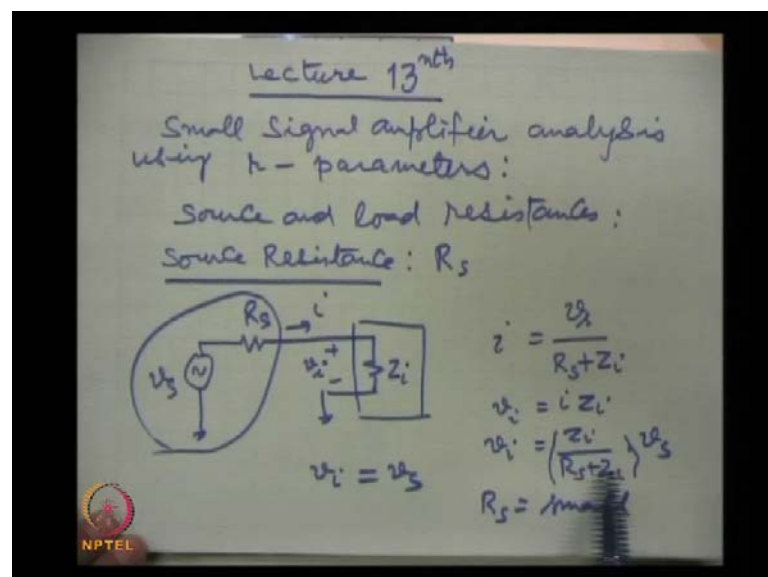 Lecture 13nth
Small Signal amplifier analysis
using h - parameters:
Source and load resistances:
Source Resistance: Rs
Rs
i
vs
vi
+
-
Zi
vi = vs
i = vs / Rs+Zi
vi = i Zi
vi = (Zi / Rs+Zi) vs
Rs = small
NPTEL